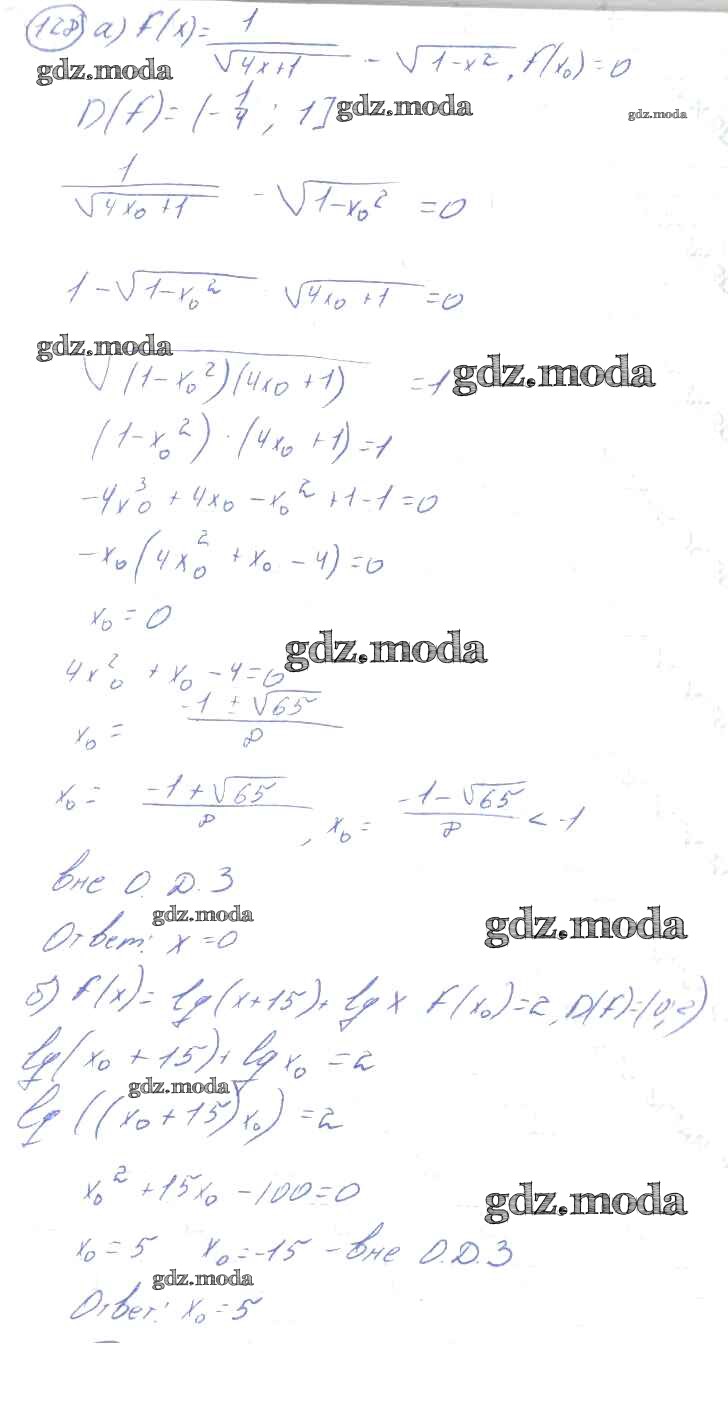 128) а) f(x) = 1/√(4x+1) - √(1-x²), f(x₀) = 0
gdz.moda
D(f) = (-1/4 ; 1]
gdz.moda
gdz.moda
1/√(4x₀+1) - √(1-x₀²) = 0
1 - √(1-x₀²) √(4x₀+1) = 0
gdz.moda
√((1-x₀²)(4x₀+1)) = 1
gdz.moda
(1-x₀²)·(4x₀+1) = 1
-4x₀³ + 4x₀ - x₀² + 1 - 1 = 0
-x₀(4x₀² + x₀ - 4) = 0
x₀ = 0
gdz.moda
4x₀² + x₀ - 4 = 0
x₀ = (-1 ± √65)/8
x₀ = (-1+√65)/8, x₀ = (-1-√65)/8 < -1
вне О.Д.З
gdz.moda
gdz.moda
Ответ: x = 0
б) f(x) = lg(x+15) + lg x f(x₀) = 2, D(f) =
lg(x₀+15) + lg x₀ = 2
gdz.moda
lg((x₀+15)x₀) = 2
x₀² + 15x₀ - 100 = 0
gdz.moda
x₀ = 5 x₀ = -15 - вне О.Д.З
gdz.moda
Ответ: x₀ = 5